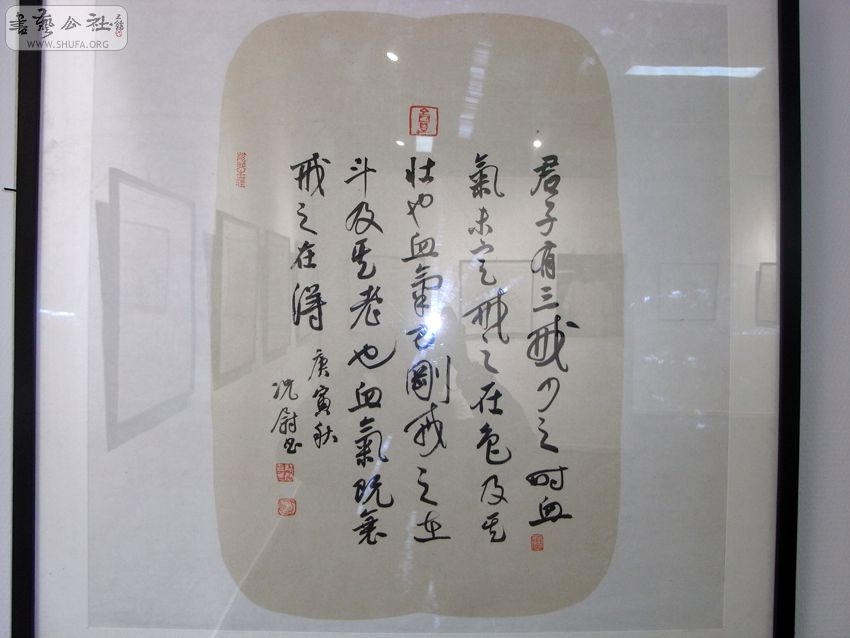 君子有三戒少之时血
氣未定戒之在色及其
壮也血氣方剛戒之在
斗及其老也血氣既衰
戒之在得
庚寅秋
况尉书
書藝公社
WWW.SHUFA.ORG